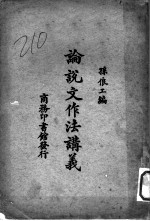 210
孫俍工編
論說文作法講義
商務印書館發行